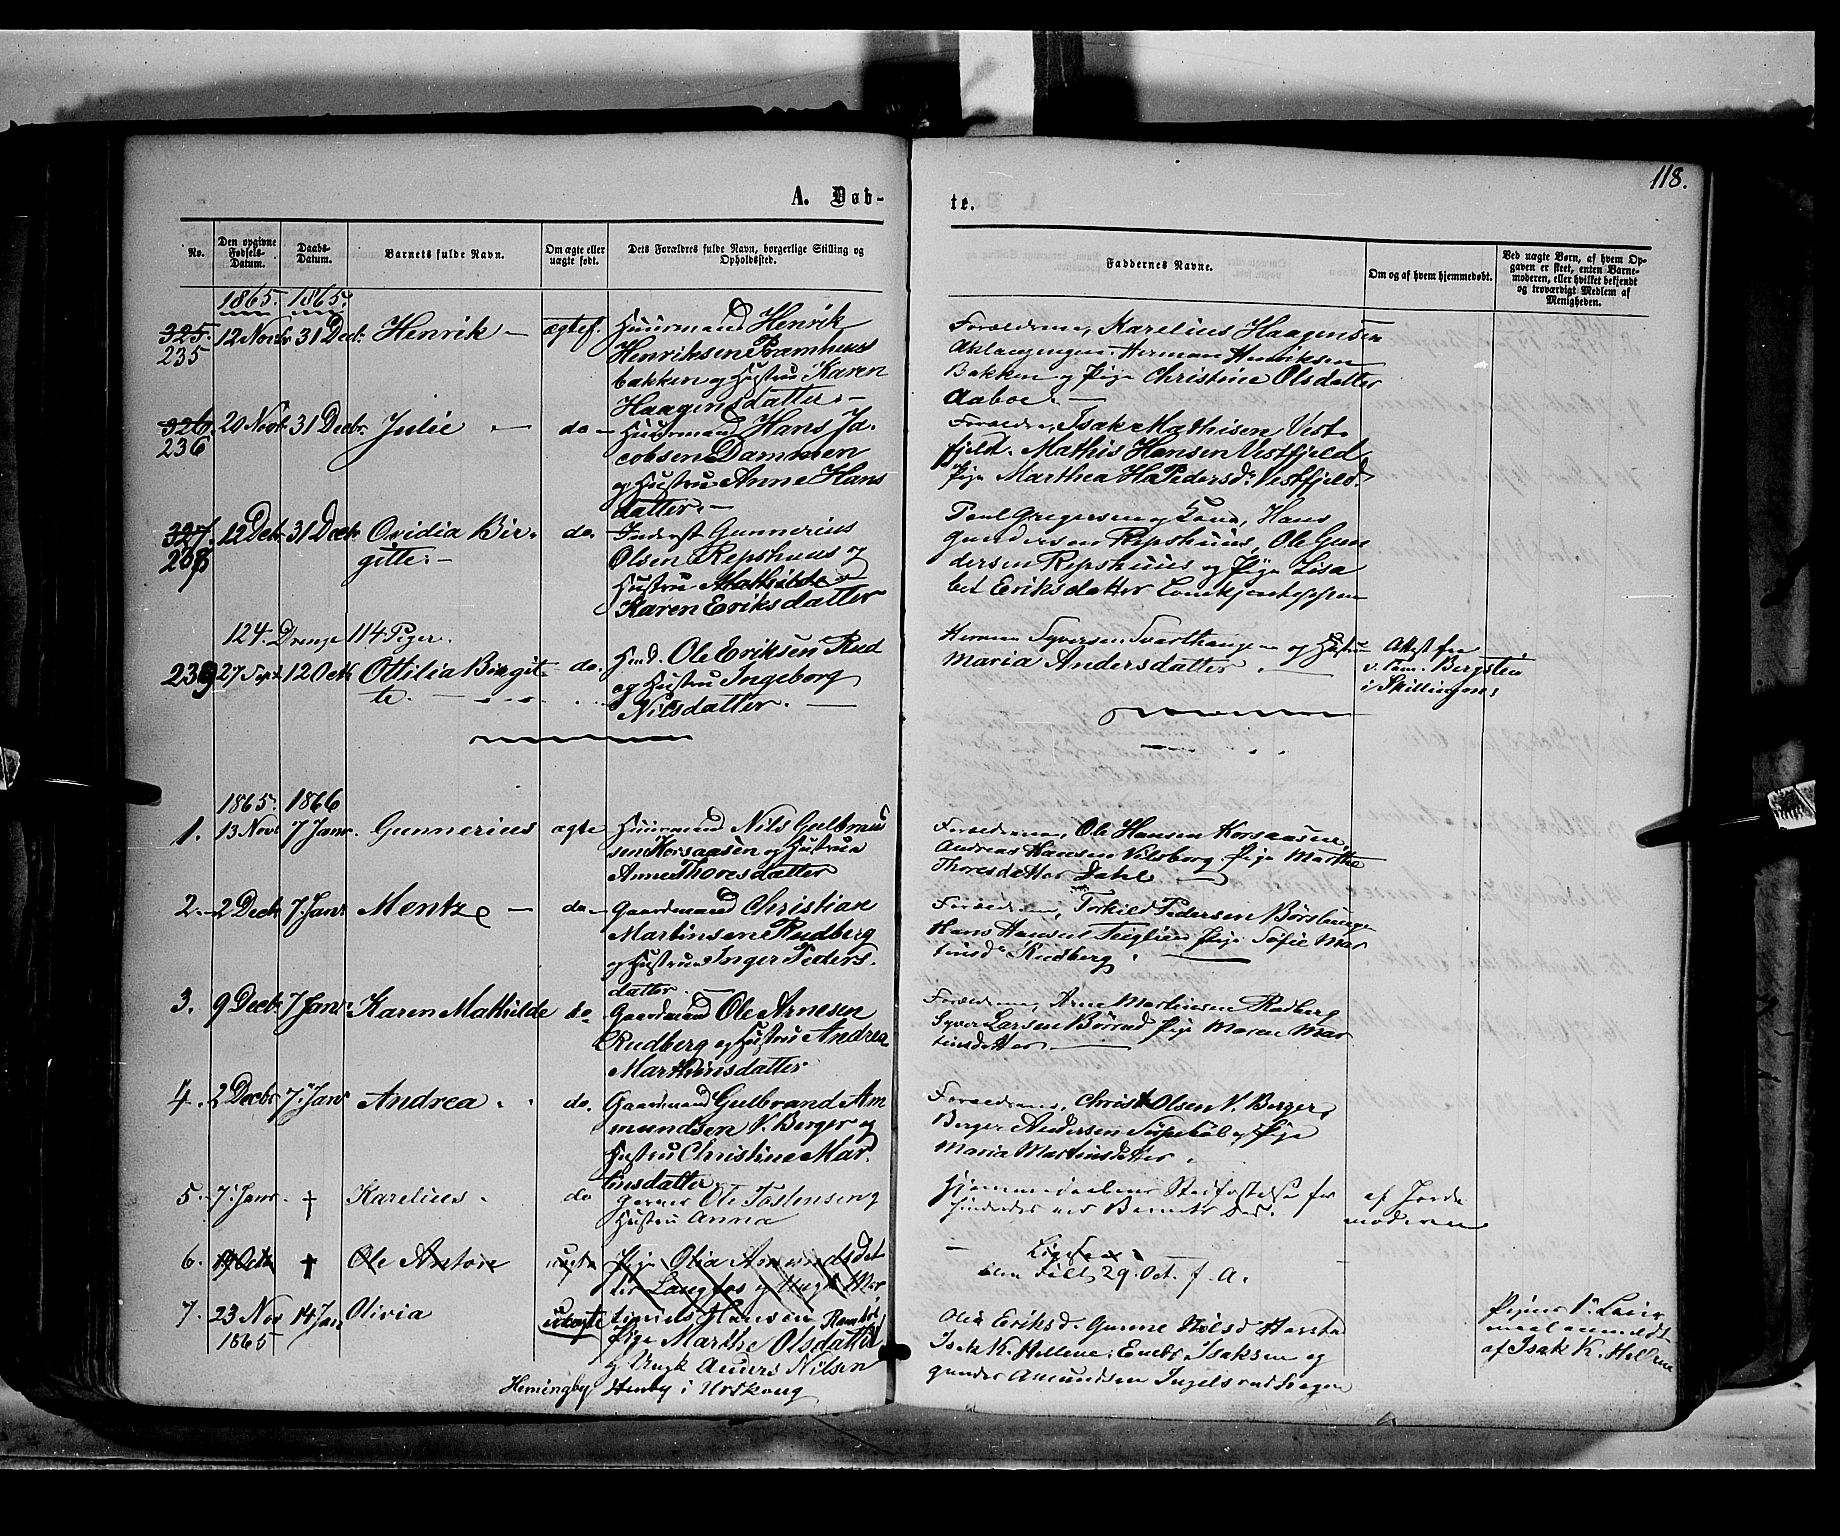 118.
A. Døb-
te.
No.
Den opgivne Fødsels-Datum.
Daabs-Datum.
Barnets fulde Navn.
Om ægte eller uægte født.
Dets Forældres fulde Navn, borgerlige Stilling og Opholdssted.
Faddernes Navne.
Om og af hvem hjemmedøbt.
Ved uægte Børn, af hvem Op-
gaven er skeet, enten Barne-
moderen, eller hvilket bekjendt
og troværdigt Medlem af
Menigheden.
1865. 1865.
325. 12 Novbr 31 Decbr. Henrik – ægtef. Huusmand Henrik
235
Henriksen
bakken og Hustru Karen
Haagensdatter. –
Forældrene, Karelius Haagensen
Herman Henriksen
Bakken og Pige Christine Olsdatter
Aaboe. –
326. 20 Novbr 31 Decbr. Julie – do – Huusmand Hans Ja-
236
cobsen Dammen
og Hustru Anne Hans
datter. –
Forældre, Isak Mathisen Vest-
fjeld. Mathis Hansen Vestfjeld
Pige Marthea Pedersd. Vestfjeld.
327. 12 Decbr 31 Decbr Ovidia Bir- do. Inderst Gunnerius
gitte. –
Olsen Repshuus og
Hustru
Karen Eriksdatter
Poul Gregersen og Kone, Hans
Gundersen Repshuus, Ole Gun
dersen Repshuus og Pige Lisa
bet Eriksdatter
124. Drenge 114 Piger.
239 27 Sept 12 Octb Ottilia Birgit- do. Ole Eriksen Rud
te.
og Hustru Ingeborg
Nilsdatter. –
Herman Syversen Svarthaugen og Hustru
Maria Andersdatter.
Attest fra
Bergsten
i Skillingm
1865. 1866
1. 13 Novb 7 Janr. Gunnerius ægte Huusmand Nils Gulbrand
sen Korsaasen og Hustru
Anne Thoresdatter
Forældrene, Ole Hansen Korsaasen,
Andreas Hansen Nilsberg Pige Marthe
Thoresdatter Dahl
2. 2 Decbr 7. Janr Mentz – do – Gaardmand Christian
Martinsen Rudberg
og Hustru Inger Peders.
datter. –
Forældrene, Torkild Pedersen
Hans Hansen Teiglien Pige Sofie Mar
tinsd. Rudberg.
3. 9 Decbr 7 Janr Karen Mathilde do. Gaardmand Ole Arnesen
Rudberg og Hustru Andrea
Marthinsdatter
Forældrene, Arne Martinsen Rudberg
Syver Larsen Børrud Pige Maren Mar
tinsdatter
4. 2 Decbr 7. Janr Andrea. do. Gaardmand Gulbrand Am
mundsen V. Berger og
Hustru Christine Mar.
tinsdatter
Forældrene, Christ Olsen V. Berger,
Berger Andersen og Pige
Maria Martinsdatter.
5. 7. Janr. † Karelius. do Ole Tostensen og
Hustru Anna
Hjemmedaabens Stadfæstelse for
hindredes ved Barnets Død.
af Jorde
moderen
6. 19 Octb † Ole Anton uægte Pige Olia Amundsdat
ter Langfos og Ungk. Mar
den Født 29. Oct. f. A.
7. 23 Nov 14 Jan Olivia uægte tinius Hansen
1865
Pige Marthe Olsdatter
og Ungk Anders Nilsen
Hemingby Henby i Urskoug
Olia Eriksd. Gunne Nilsd
Isak K. Hellene, Isaksen og
Gunder Amundsen
Pigens
maal anmeldt
af Isak K. Hellene